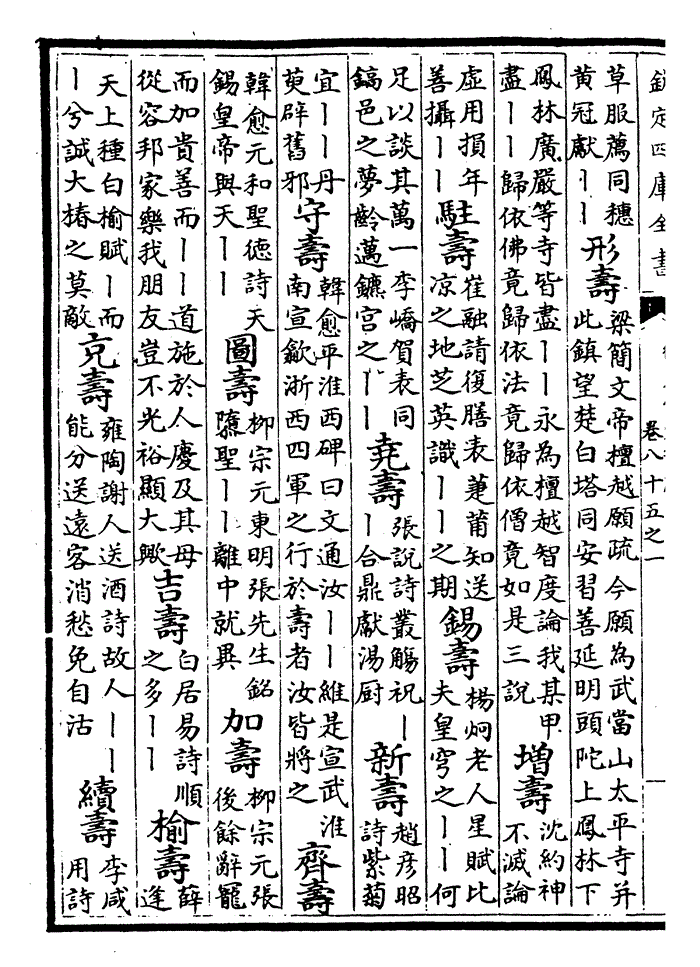 欽定四庫全書
卷八十五之一
草服薦同穗黄冠獻丨丨形壽梁簡文帝檀越願疏今願為武當山太平寺并此鎮望楚白塔同安習善延明頭陀上鳳林下
鳳林廣嚴等寺皆盡丨丨永為檀越智度論我某甲盡丨丨歸依佛竟歸依法竟歸依僧竟如是三說增壽沈約神不滅論
虛用損年善攝丨丨駐壽崔融請復膳表萐莆知送凉之地芝英識丨丨之期錫壽楊炯老人星賦比夫皇穹之丨丨何
足以談其萬一李嶠賀表同鎬邑之夢齡邁鑣宮之丨丨堯壽張說詩叢觴祝丨丨合鼎獻湯厨新壽趙彥昭詩紫菊
宜丨丨丹萸辟舊邪守壽韓愈平淮西碑曰文通汝丨丨維是宣武淮南宣歙浙西四軍之行於壽者汝皆將之齊壽
韓愈元和聖德詩天錫皇帝與天丨丨圖壽柳宗元東明張先生銘隳聖丨丨離中就異加壽柳宗元張後餘辭寵
而加貴善而丨丨道施於人慶及其母從容邦家樂我朋友豈不光裕顯大歟吉壽白居易詩順之多丨丨榆壽薛逢
天上種白榆賦丨而丨兮誠大椿之莫敵克壽雍陶謝人送酒詩故人丨丨能分送遠客消愁免自沽續壽李咸用詩